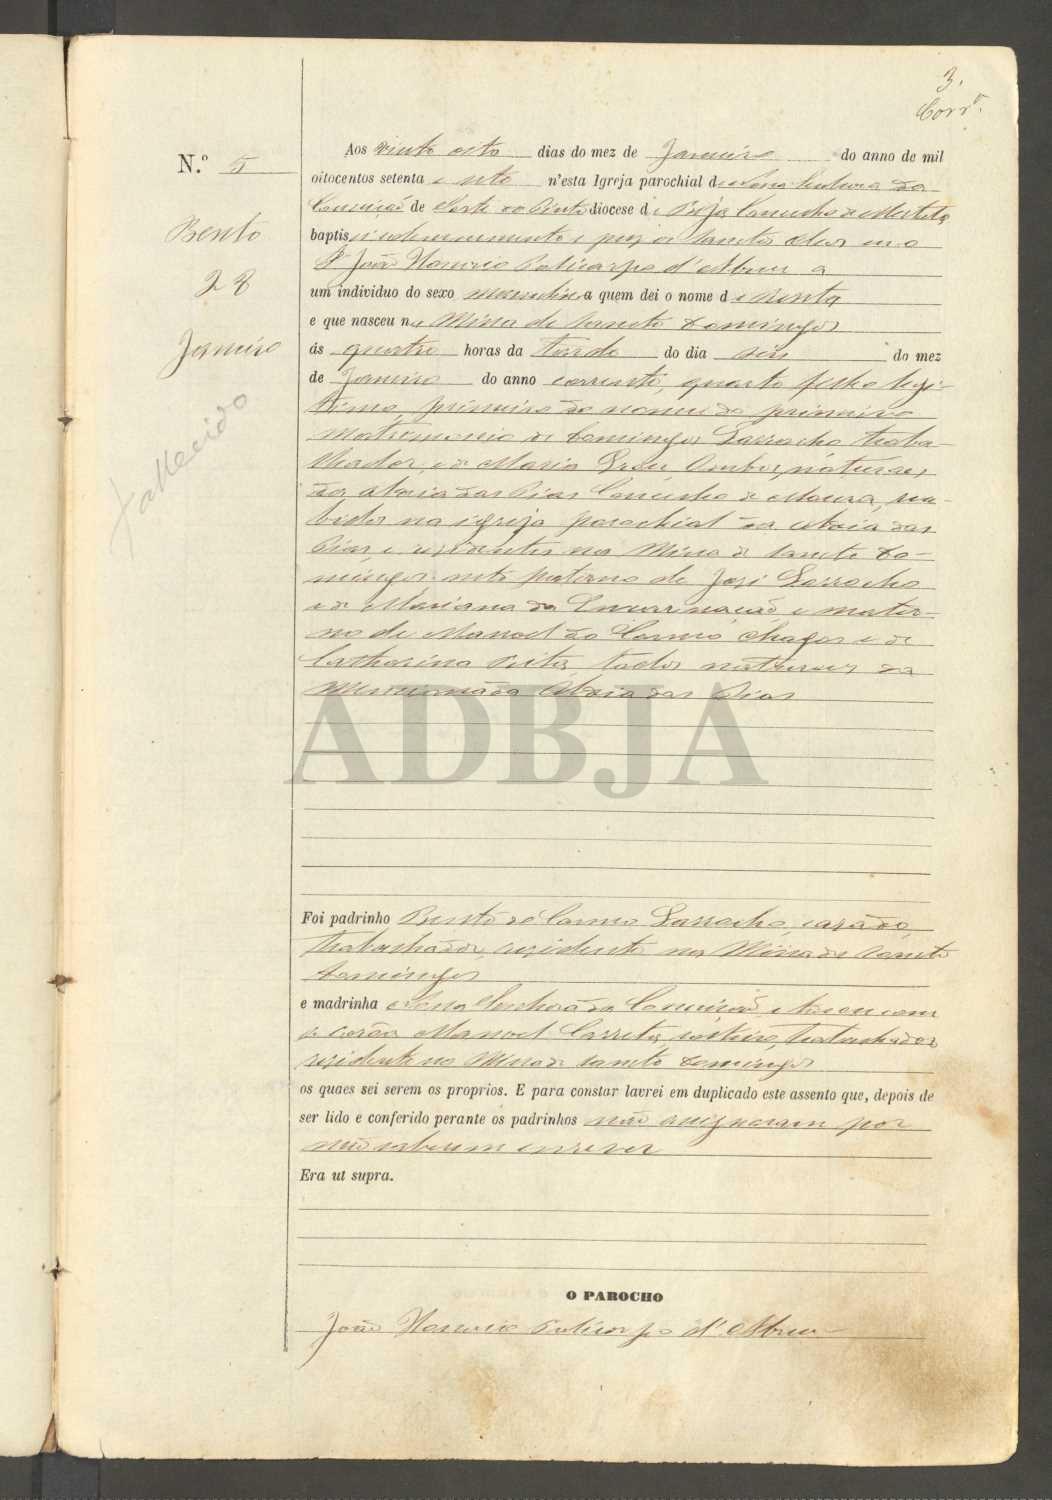 3.
Corr.ª
N.º 5
Bento
28
Janeiro
Fallecido
Aos vinte oito dias do mez de Janeiro do anno de mil
oitocentos setenta e n'esta Igreja parochial de Nossa Senhora da
Conceição de Corte do Pinto diocese de Beja Concelho de Mertola
baptisei solemnemente e puz os sanctos oleos eu o
P.e João Policarpo d'Abreu a
um individuo do sexo masculino a quem dei o nome de Bento
e que nasceu na Mina de Sancto Domingos
ás quatro horas da tarde do dia seis do mez
de Janeiro do anno corrente, quarto filho legi-
timo, primeiro do nome do primeiro
matrimonio de Domingos Larracho traba-
lhador, e de Maria naturaes
da Aldeia das Pias Concelho de Moura, rece-
bidos na igreja parochial da Aldeia das
Pias, e residentes na Mina de Sancto Do-
mingos neto paterno de José Larracho
e de Mariana da Encarnação e mater-
no de Manoel do Carmo Chagas e de
Catharina todos naturaes da
mencionada Aldeia das Pias
ADBJA
Foi padrinho Bento do Carmo Larracho, casado,
trabalhador, residente na Mina de Sancto
Domingos
e madrinha Nossa Senhora da Conceição, e tocou com
a corôa Manoel solteiro, trabalhador
residente na Mina de Sancto Domingos
os quaes sei serem os proprios. E para constar lavrei em duplicado este assento que, depois de
ser lido e conferido perante os padrinhos não assignaram por
não saberem escrever
Era ut supra.
O PAROCHO
João Policarpo d'Abreu